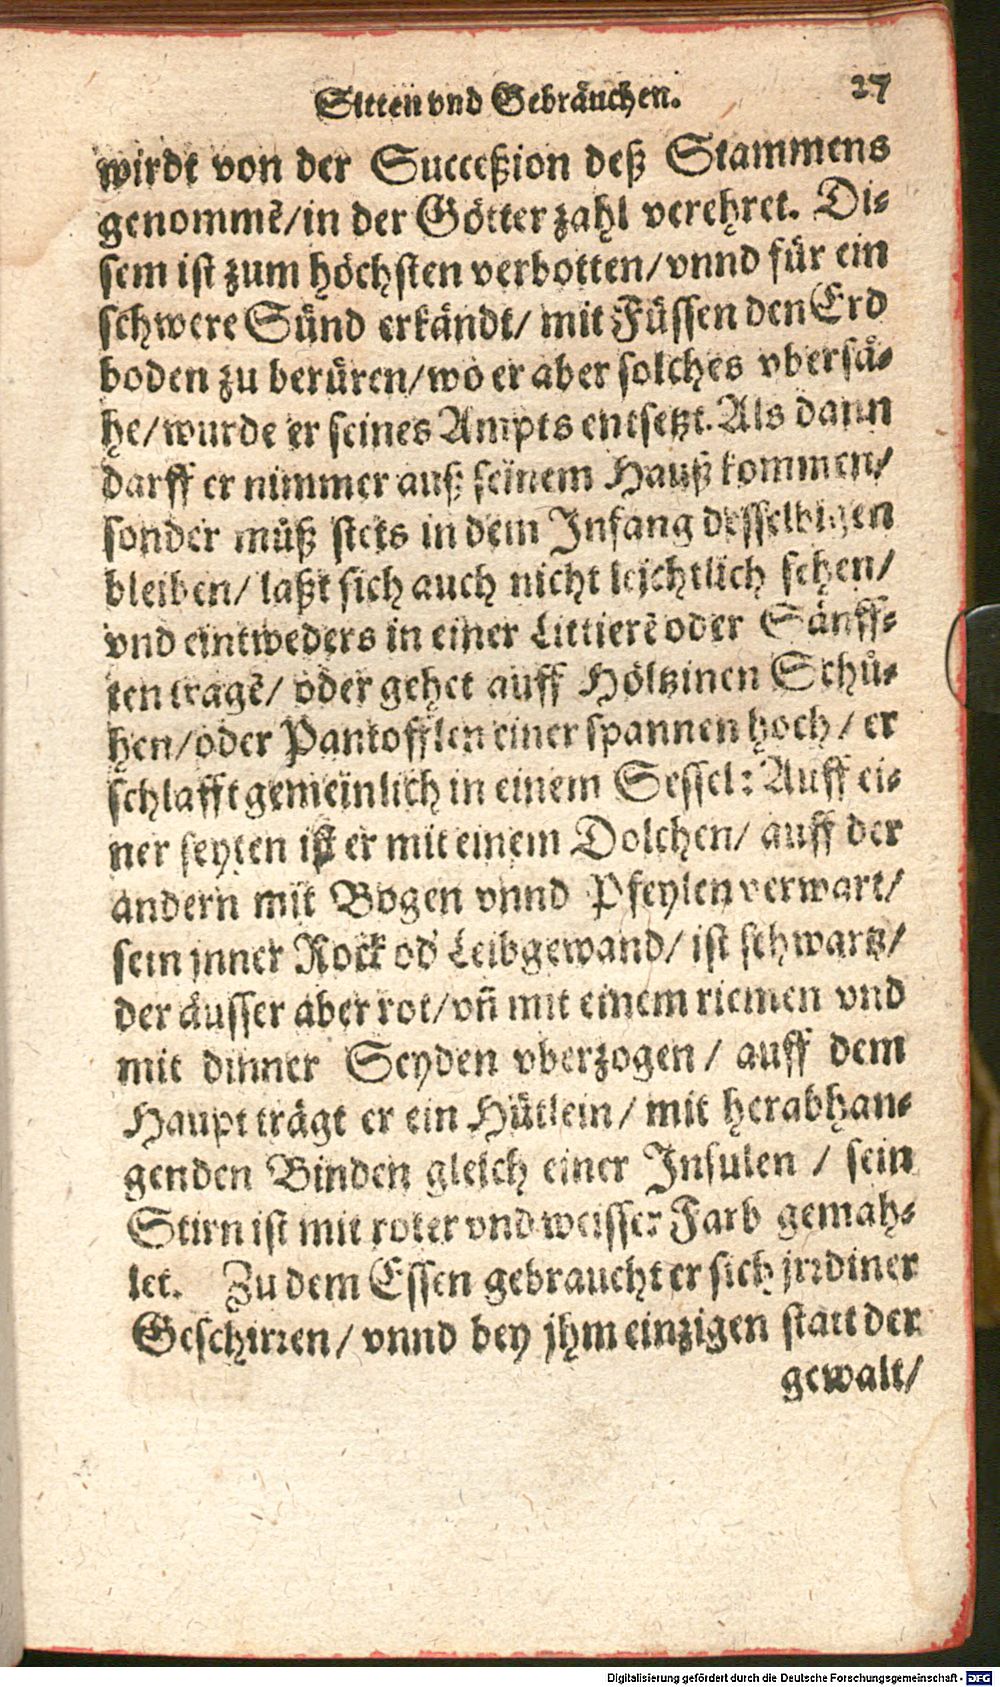 Sitten vnd Gebräuchen. 27
wirdt von der Succeßion deß Stammens
genommẽ/in der Götter zahl verehret. Di-
sem ist zum höchsten verbotten/vnnd für ein
schwere Sünd erkändt/ mit Füssen den Erd
boden zu berüren/wo er aber solches vbersä-
he/wurde er seines Ampts entsetzt. Als dann
darff er nimmer auß seinem Hauß kommen/
sonder muß stets in dem Infang desselbigen
bleiben/ laßt sich auch nicht leichtlich sehen/
vnd eintweders in einer Littierẽ oder Sänff-
ten tragẽ/ oder gehet auff Höltzinen Schu-
hen/oder Pantofflen einer spannen hoch/ er
schlafft gemeinlich in einem Sessel: Auff ei-
ner seyten ist er mit einem Dolchen/ auff der
andern mit Bogen vnnd Pfeylen verwart/
sein inner Rock od' Leibgewand/ ist schwartz/
der äusser aber rot/vñ mit einem riemen vnd
mit dinner Seyden vberzogen/ auff dem
Haupt trägt er ein Hütlein/ mit herabhan-
genden Binden gleich einer Insulen / sein
Stirn ist mit roter vnd weisser Farb gemah-
let. Zu dem Essen gebraucht er sich jrrdiner
Geschirren/ vnnd bey jhm einzigen statt der
gewalt/
Digitalisierung gefördert durch die Deutsche Forschungsgemeinschaft - DFG